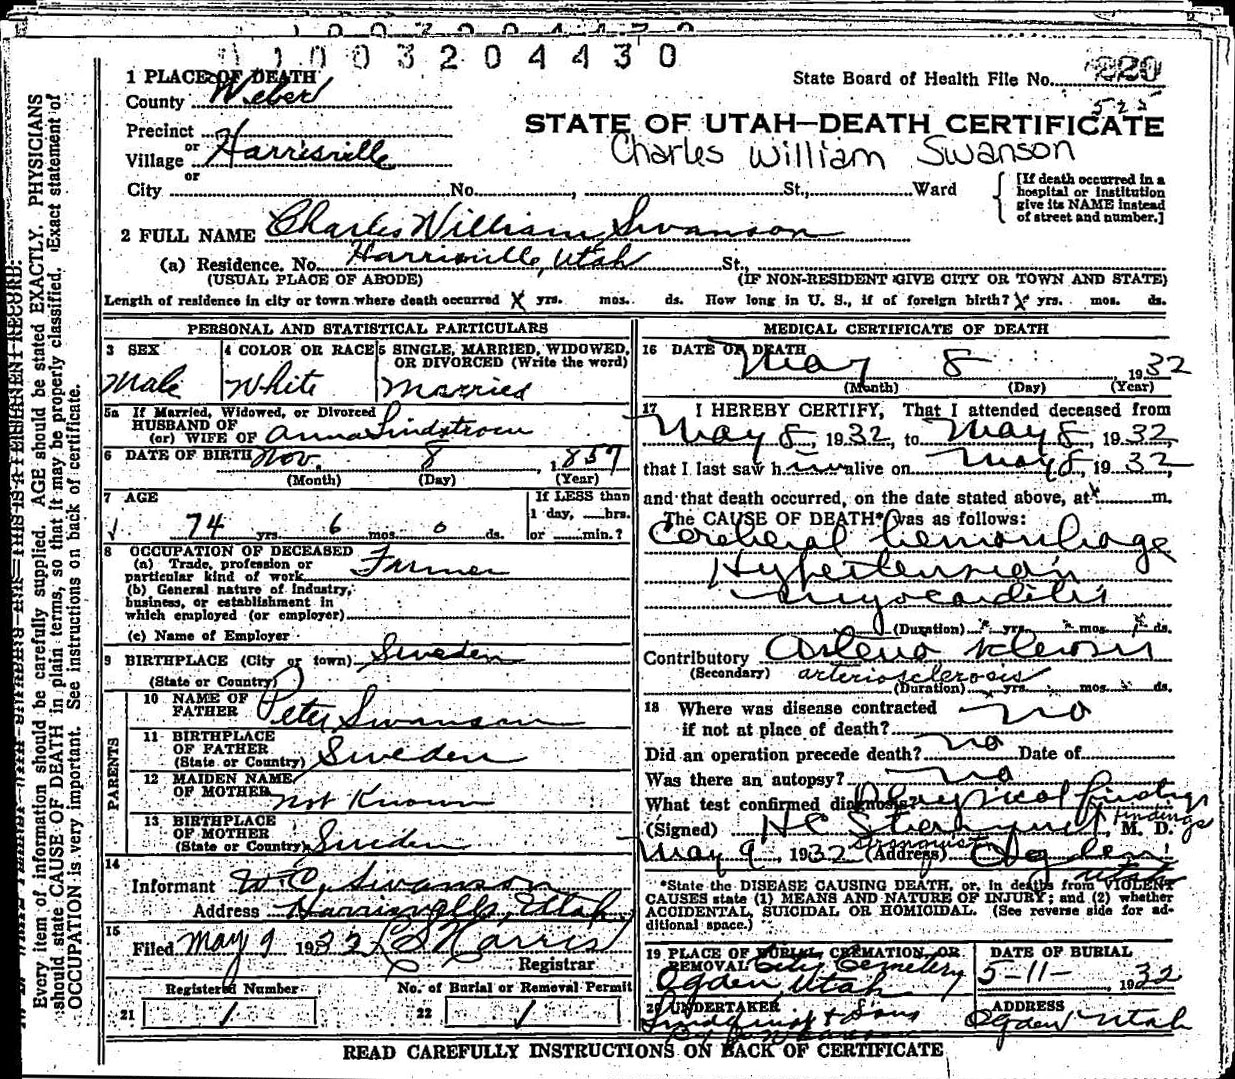 1003204430
1 PLACE OF DEATH
State Board of Health File No. 220
County Weber
522
Precinct
or
Village Harrisville
or
STATE OF UTAH—DEATH CERTIFICATE
Charles William Swanson
City No. , St., Ward
[If death occurred in a hospital or institution give its NAME instead of street and number.]
2 FULL NAME Charles William Swanson
(a) Residence, No. Harrisville, Utah St.,
(USUAL PLACE OF ABODE) (IF NON-RESIDENT GIVE CITY OR TOWN AND STATE)
Length of residence in city or town where death occurred X yrs. mos. ds. How long in U. S., if of foreign birth? X yrs. mos. ds.
PERSONAL AND STATISTICAL PARTICULARS
3 SEX
Male
4 COLOR OR RACE
White
5 SINGLE, MARRIED, WIDOWED, OR DIVORCED (Write the word)
Married
5a If Married, Widowed, or Divorced
HUSBAND OF
(or) WIFE OF Anna Lindstrom
6 DATE OF BIRTH Nov. 8, 1857
(Month) (Day) (Year)
7 AGE
74 yrs. 6 mos. 0 ds.
If LESS than
1 day, hrs.
or min.?
8 OCCUPATION OF DECEASED
(a) Trade, profession or
particular kind of work Farmer
(b) General nature of Industry,
business, or establishment in
which employed (or employer)
(c) Name of Employer
9 BIRTHPLACE (City or town) Sweden
(State or Country)
PARENTS
10 NAME OF
FATHER Peter Swanson
11 BIRTHPLACE
OF FATHER
(State or Country) Sweden
12 MAIDEN NAME
OF MOTHER Not Known
13 BIRTHPLACE
OF MOTHER
(State or Country) Sweden
14
Informant W. C. Swanson
Address Harrisville, Utah
15
Filed May 9 1932 L S Harris
Registrar
Registered Number
21 1
No. of Burial or Removal Permit
22 1
MEDICAL CERTIFICATE OF DEATH
16 DATE OF DEATH
May 8 1932
(Month) (Day) (Year)
17 I HEREBY CERTIFY, That I attended deceased from
May 8, 1932, to May 8, 1932,
that I last saw him alive on May 8, 1932,
and that death occurred, on the date stated above, at m.
The CAUSE OF DEATH* was as follows:
Cerebral hemorrhage
Hypertension
myocarditis
(Duration) yrs. mos. ds.
Contributory Arterio sclerosis
(Secondary) arteriosclerosis
(Duration) yrs. mos. ds.
18 Where was disease contracted
if not at place of death? no
Did an operation precede death? no Date of
Was there an autopsy? no
What test confirmed diagnosis? Physical findings
findings
(Signed) H C Stranquist, M. D.
Stranquist
May 9, 1932 (Address) Ogden
Utah
*State the DISEASE CAUSING DEATH, or, in deaths from VIOLENT
CAUSES state (1) MEANS AND NATURE OF INJURY; and (2) whether
ACCIDENTAL, SUICIDAL OR HOMICIDAL. (See reverse side for ad-
ditional space.)
19 PLACE OF BURIAL, CREMATION, OR
REMOVAL City Cemetery
Ogden, Utah
DATE OF BURIAL
5-11-, 1932
20 UNDERTAKER
Lindquist & Sons
ADDRESS
Ogden Utah
READ CAREFULLY INSTRUCTIONS ON BACK OF CERTIFICATE
Every item of information should be carefully supplied. AGE should be stated EXACTLY. PHYSICIANS
should state CAUSE OF DEATH in plain terms, so that it may be properly classified. Exact statement of
OCCUPATION is very important. See instructions on back of certificate.